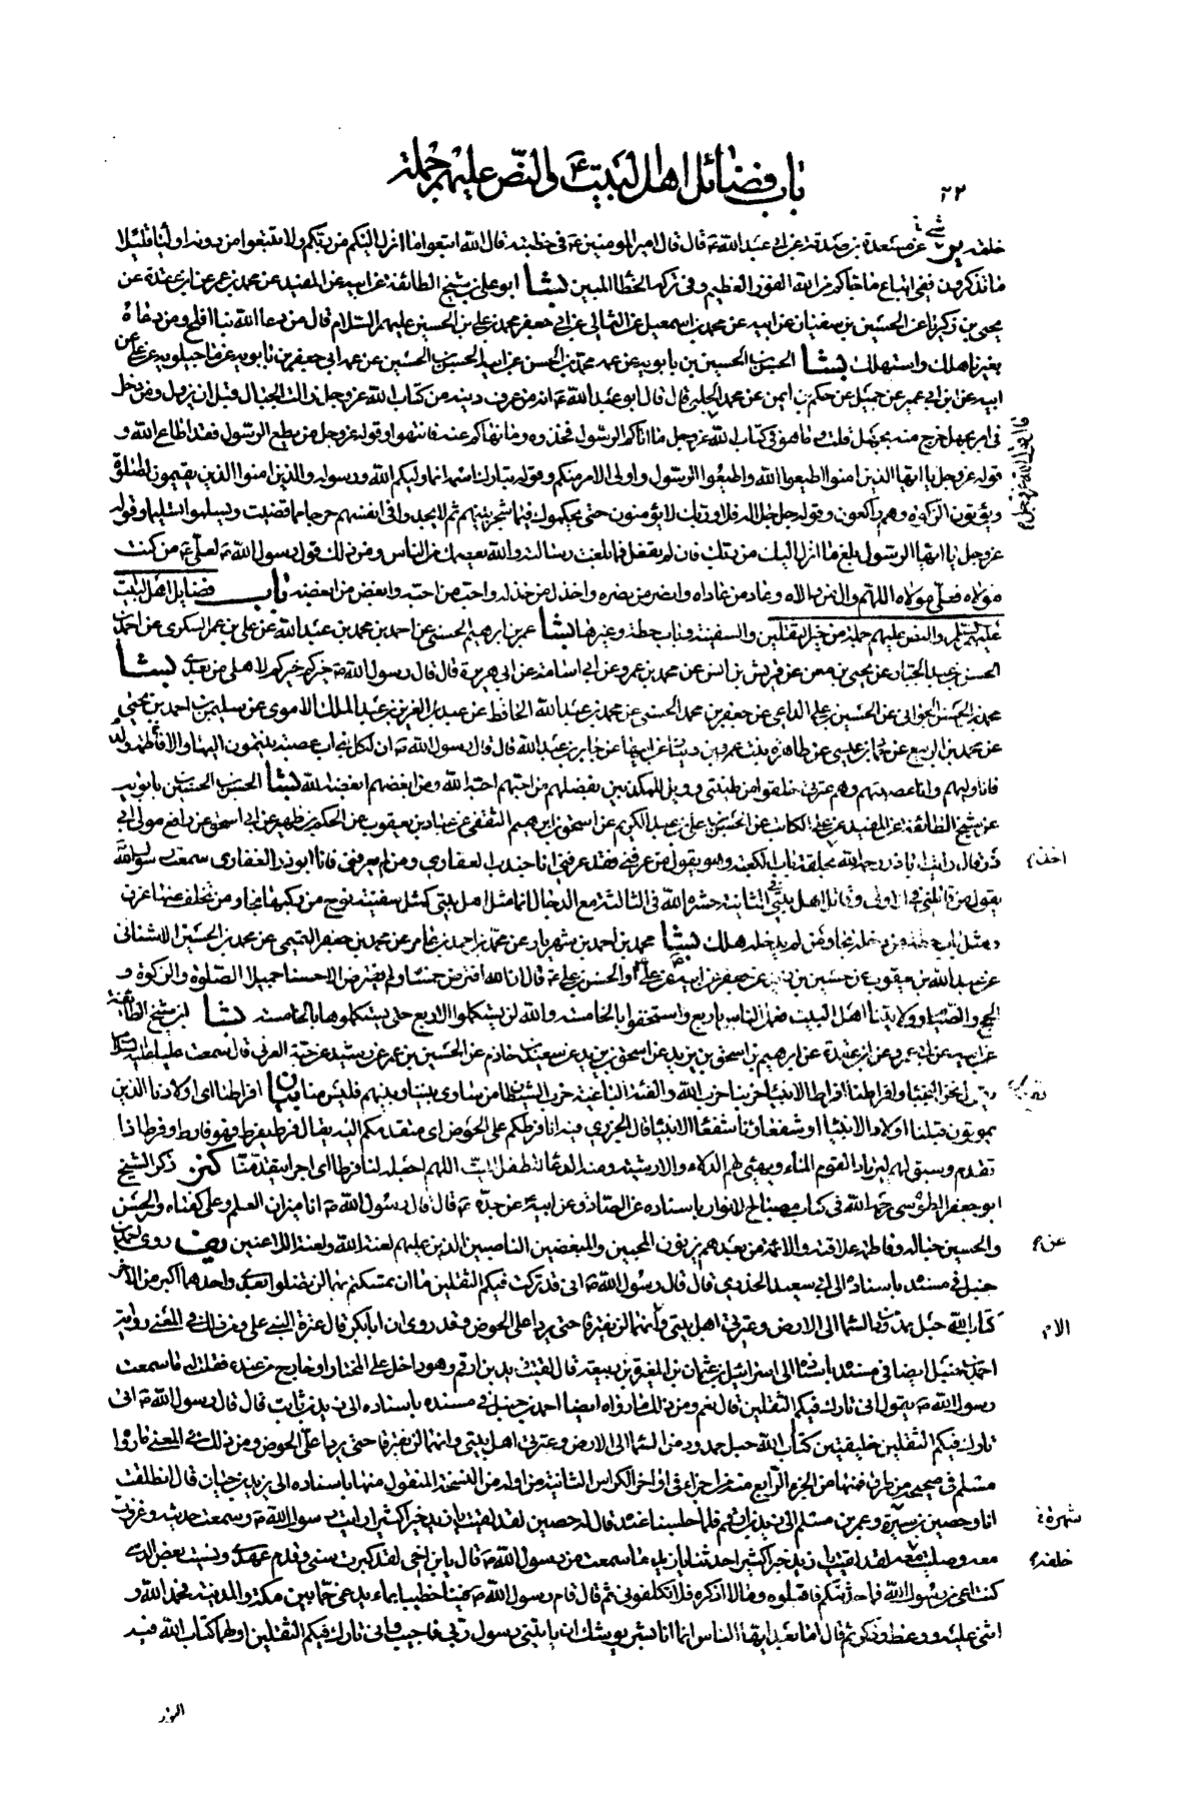 باب فضائل اهل البيت ع والنص عليهم جملة
٢٢
خلفه عن مسعدة بن صدقة عن ابي عبد الله ع قال قال امير المومنين ع في خطبته قال الله اتبعوا ما انزل اليكم من ربكم ولا تتبعوا من دونه اولياء قليلا
ما تذكرون ففي اتباع ما جاءكم من الله الفوز العظيم وفي تركه الخطأ المبين بشا ابو علي بن شيخ الطائفة عن ابيه عن المفيد عن محمد بن عمر عن ابن عقدة عن
يحيى بن زكريا عن الحسين بن سفيان عن ابيه عن محمد بن اسمعيل عن الثمالي عن ابي جعفر محمد بن علي بن الحسين عليهم السلام قال من دعا الله بنا افلح ومن دعاه
بغيرنا هلك واستهلك بشا الحسن بن الحسين بن بابويه عن عمه محمد بن الحسن عن ابيه الحسن بن الحسين عن عمه ابي جعفر بن بابويه عن ماجيلويه عن علي عن
ابيه عن ابن ابي عمير عن جميل عن حكم بن ايمن عن محمد الحلبي قال قال ابو عبد الله ع انه من عرف دينه من كتاب الله عز وجل زالت الجبال قبل ان يزول ومن دخل
في امر بجهل خرج منه بجهل قلت وما هو في كتاب الله قول الله عز وجل ما اتاكم الرسول فخذوه وما نهاكم عنه فانتهوا وقوله عز وجل من يطع الرسول فقد اطاع الله و
قوله عز وجل يا ايها الذين امنوا اطيعوا الله واطيعوا الرسول واولى الامر منكم وقوله تبارك اسمه انما وليكم الله ورسوله والذين امنوا الذين يقيمون الصلوة
ويؤتون الزكوة وهم راكعون وقوله جل جلاله فلا وربك لا يؤمنون حتى يحكموك فيما شجر بينهم ثم لا يجدوا في انفسهم حرجا مما قضيت ويسلموا تسليما وقوله
عز وجل يا ايها الرسول بلغ ما انزل اليك من ربك فان لم تفعل فما بلغت رسالته والله يعصمك من الناس ومن ذلك قول رسول الله ص لعلي ع من كنت
مولاه فعلي مولاه اللهم وال من والاه وعاد من عاداه وانصر من نصره واخذل من خذله واحب من احبه وابغض من ابغضه باب فضايل اهل البيت
عليهم السلم والنص عليهم جملة من خبر الثقلين والسفينة وباب حطة وغيرها بشا عمر بن ابرهيم الحسني عن احمد بن محمد بن عبد الله عن علي بن عمر السكري عن احمد بن
الحسن بن عبد الجبار عن يحيى بن معين عن قريش بن انس عن محمد بن عمرو عن ابي اسامة عن ابي هريرة قال قال رسول الله ص خيركم خيركم لاهلي من بعدي بشا
محمد بن الحسن الجواني عن الحسين بن علي الداعي عن جعفر بن محمد الحسني عن محمد بن عبد الله الحافظ عن عبد العزيز بن عبد الملك الاموي عن سليمن بن احمد بن يحيى
قال قال رسول الله ص ان لكل بني اب عصبة ينتمون اليها الا ولد فاطمة
فانا وليهم وانا عصبتهم وهم عترتي خلقوا من طينتي ويل للمكذبين بفضلهم من احبهم احبه الله ومن ابغضهم ابغضه الله بشا الحسن بن الحسين بن بابويه
عن شيخ الطائفة عن المفيد عن علي الكاتب عن الحسن بن علي بن عبد الكريم عن اسحق بن ابرهيم الثقفي عن عباد بن يعقوب عن الحكم بن ظهير عن ابي اسحق عن رافع مولى ابي
ذر قال رايت ابا ذر رحمه الله بحلقة باب الكعبة وهو يقول من عرفني فقد عرفني انا جندب الغفاري ومن لم يعرفني فانا ابو ذر الغفاري سمعت رسول الله
يقول من قاتلني في الاولى وقاتل اهل بيتي في الثانية حشره الله في الثالثة مع الدجال انما مثل اهل بيتي كمثل سفينة نوح من ركبها نجا ومن تخلف عنها غرق
ومثل باب حطة من دخله نجا ومن لم يدخله هلك بشا محمد بن احمد بن شهريار عن محمد بن احمد بن عامر عن محمد بن جعفر التميمي عن محمد بن الحسين الاشناني
قال ان الله افترض خمسا ولم يفترض الا حسنا جميلا الصلوة والزكوة و
الحج والصيام وولايتنا اهل البيت فعمل الناس باربع واستخفوا بالخامسة والله لن يستكملوا الاربع حتى يستكملوها بالخامسة بشا ابن شيخ الطائفة
عن ابيه عن ابي عمرو عن ابن عقدة عن ابراهيم بن اسحق بن يزيد عن اسحق بن يزيد عن سعيد بن حازم عن الحسين بن عمر عن رشيد عن حبة العرني قال سمعت عليا عليه السلام
يقول نحن النجباء وافراطنا افراط الانبياء حزبنا حزب الله والفئة الباغية حزب الشيطان من ساوى بيننا وبينهم فليس منا بيان افراطنا اي اولادنا الذين
يموتون قبلنا اولاد الانبياء او شفعاؤنا شفعاء الانبياء قال الجزري فيه انا فرطكم على الحوض اي متقدمكم اليه يقال فرط يفرط فهو فارط وفرط اذا
تقدم وسبق القوم ليرتاد لهم الماء ويهيئ لهم الدلاء والارشية ومنه الدعاء للطفل الميت اللهم اجعله لنا فرطا اي اجرا يتقدمنا كنز ذكر الشيخ
ابو جعفر الطوسي رحمه الله في كتاب مصباح الانوار باسناده عن الصادق عن ابيه عن جده ع قال قال رسول الله ص انا ميزان العلم وعلي كفتاه والحسن
والحسين حباله وفاطمة علاقته والائمة من بعدهم يزنون المحبين والمبغضين الناصبين الذين عليهم لعنة الله ولعنة اللاعنين يف روى احمد بن
حنبل في مسنده باسناده الى ابي سعيد الخدري قال قال رسول الله ص اني قد تركت فيكم الثقلين ما ان تمسكتم بهما لن تضلوا بعدي واحدهما اكبر من الاخر
كتاب الله حبل ممدود من السماء الى الارض وعترتي اهل بيتي وانهما لن يفترقا حتى يردا على الحوض وقد روى ان ابا بكر قال عترة النبي علي ومن ذلك في المعنى رواية
احمد بن حنبل ايضا في مسنده باسناده الى اسرائيل بن عثمان بن المغيرة بن ربيعة قال لقيت زيد بن ارقم وهو داخل على المختار او خارج من عنده فقلت له ما سمعت
رسول الله ص يقول اني تارك فيكم الثقلين قال نعم ومن ذلك ما رواه ايضا احمد بن حنبل في مسنده باسناده الى زيد بن ثابت قال قال رسول الله ص اني
تارك فيكم الثقلين خليفتين كتاب الله حبل ممدود من السماء الى الارض وعترتي اهل بيتي وانهما لن يفترقا حتى يردا على الحوض ومن ذلك في المعنى ما رواه
مسلم في صحيحه من طرق فمنها من الجزء الرابع منه من اجزاء في اواخر الكراس الثانية من اوله من النسخة المنقول منها باسناده الى يزيد بن حيان قال انطلقت
انا وحصين بن سبرة وعمر بن مسلم الى زيد بن ارقم فلما جلسنا عنده قال له حصين لقد لقيت يا زيد خيرا كثيرا رايت رسول الله ص وسمعت حديثه وغزوت
معه وصليت معه لقد لقيت يا زيد خيرا كثيرا حدثنا يا زيد ما سمعت من رسول الله ص قال يا بن اخي لقد كبرت سني وقدم عهدي ونسيت بعض الذي
كنت اعي من رسول الله فما حدثتكم فاقبلوه وما لا اذكره فلا تكلفوني ثم قال قام رسول الله ص فينا خطيبا بماء يدعى خما بين مكة والمدينة فحمد الله و
اثنى عليه ووعظ وذكر ثم قال اما بعد ايها الناس انما انا بشر يوشك ان ياتيني رسول ربي فاجيب واني تارك فيكم الثقلين اولهما كتاب الله فيه
النور